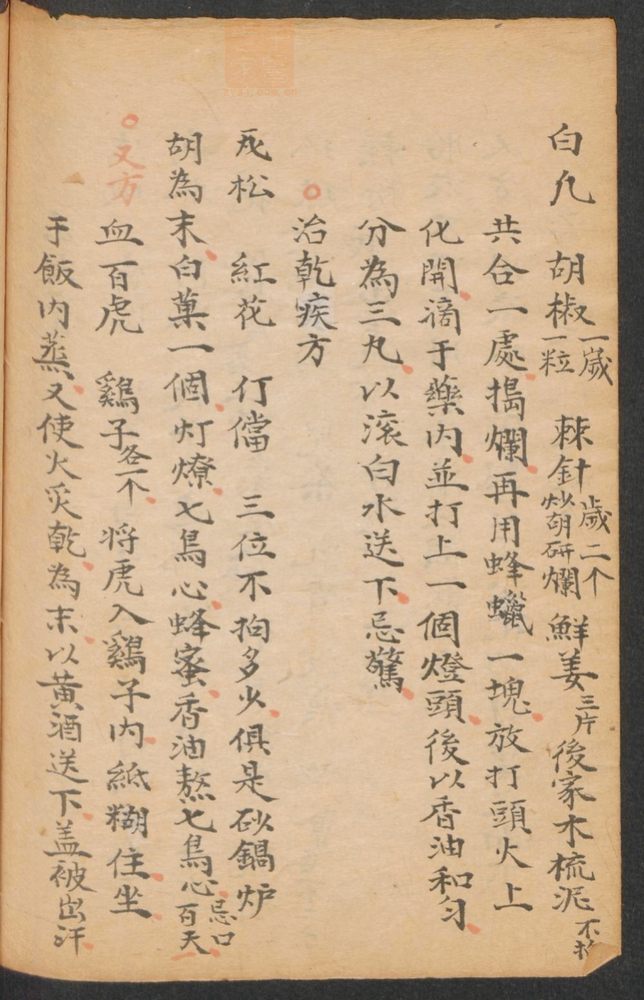 白凡 胡椒一歲一粒 棘針歲二个炒胡研爛 鮮姜三片 後家木梳泥不拘
共合一處搗爛再用蜂蠟一塊放打頭火上
化開滴于藥内並打上一個燈頭後以香油和匀
分為三丸以滚白水送下忌驚
治乾疾方
瓦松 紅花 仃儅 三位不拘多少俱是砂鍋炉
胡為末白菓一個灯燎七鳥心蜂蜜香油熬七鳥心忌口百天
又方
血百虎 鷄子各一个 将虎入鷄子内紙糊住坐
于飯内蒸又使火炙乾為末以黄酒送下盖被出汗